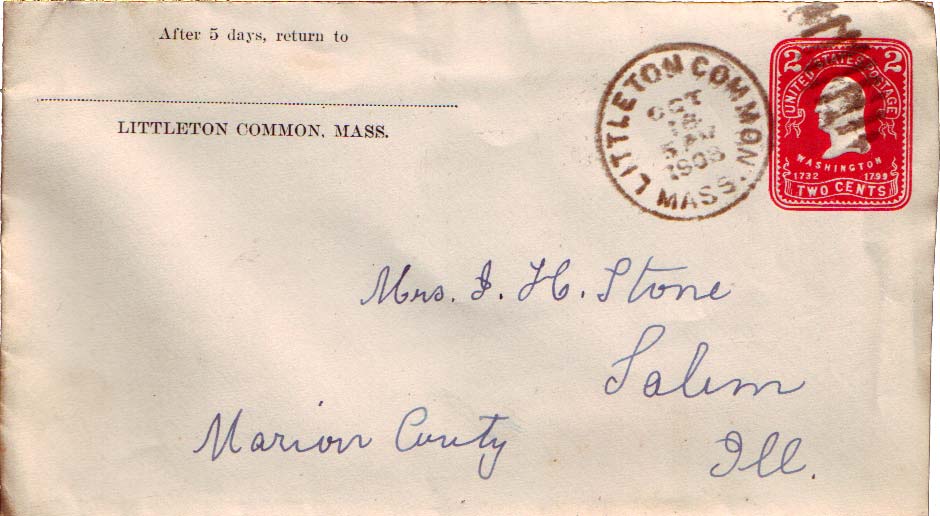 After 5 days, return to
LITTLETON COMMON, MASS.
LITTLETON COMMON,
MASS.
1908
2 2
UNITED STATES POSTAGE
WASHINGTON
1732 1799
TWO CENTS
Mrs. I. H. Stone
Salem
Marion Conty
Ill.